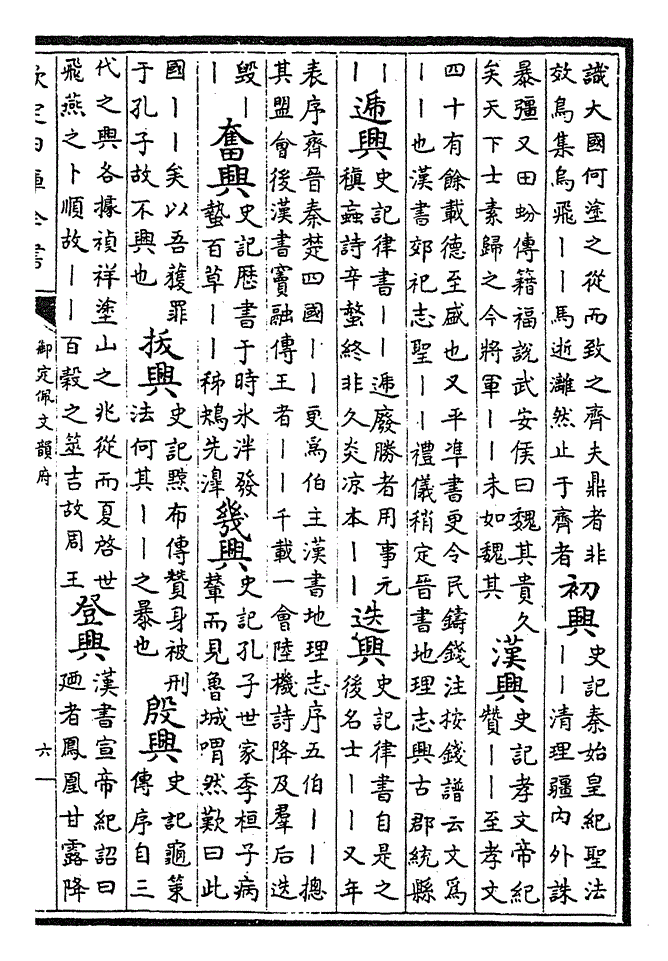 識大國何塗之從而致之齊夫鼎者非
效鳥集烏飛｜｜馬逝灕然止于齊者
初興
史記秦始皇紀聖法
｜｜清理疆内外誅
暴彊又田蚡傳籍福說武安侯曰魏其貴久
矣天下士素歸之今將軍｜｜未如魏其
漢興
史記孝文帝紀
贊｜｜至孝文
四十有餘載德至盛也又平準書更令民鑄錢注按錢譜云文爲
｜｜也漢書郊祀志聖｜｜禮儀稍定晉書地理志興古郡統縣
｜
｜
遞興
史記律書｜｜遞廢勝者用事元
稹蝱詩辛螫終非久炎凉本｜｜
迭興
史記律書自是之
後名士｜｜又年
表序齊晉秦楚四國｜｜更爲伯主漢書地理志序五伯｜｜摠
其盟會後漢書竇融傳王者｜｜千載一會陸機詩降及羣后迭
毀｜
｜
奮興
史記歴書于時氷泮發
蟄百草｜｜秭鳺先滜
幾興
史記孔子世家季桓子病
輦而見魯城喟然歎曰此
國｜｜矣以吾獲罪
于孔子故不興也
拔興
史記黥布傳贊身被刑
法何其｜｜之暴也
殷興
史記龜策
傳序自三
代之興各據禎祥塗山之兆從而夏啓世
飛燕之卜順故｜｜百榖之筮吉故周王
登興
漢書宣帝紀詔曰
廼者鳳凰甘露降
欽定四庫全書
御定佩文韻府
六